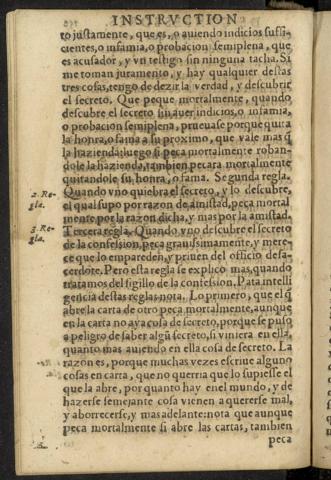 INSTRVCTION
to justamente, que es, o auiendo indicios sufi-
cientes, o infamia, o probacion semiplena, que
es acusador, y vn testigo sin ninguna tacha. Si
me toman juramento, y hay qualquier destas
tres cosas, tengo de dezir la verdad, y descubrir
el secreto. Que peque mortalmente, quando
descubre el secreto sin auer indicios, o infamia,
o probacion semiplena, prueuase porque quita
la honra, o fama a su proximo, que vale mas q̃
la hazienda: luego si peca mortalmente roban-
dole la hazienda, tambien pecara mortalmente
quitandole su honra, o fama. Segunda regla.
2. Re-
gla.
Quando vno quiebra el secreto, y lo descubre,
el qual supo por razon de amistad, peca mortal
mente por la razon dicha, y mas por la amistad.
3. Re-
gla.
Tercera regla. Quando vno descubre el secreto
de la confession, peca grauissimamente, y mere-
ce que lo empareden, y priuen del officio de sa-
cerdote. Pero esta regla se explico mas, quando
tratamos del sigillo de la confession. Pata intelli
gencia destas reglas nota. Lo primero, que el q̃
abre la carta de otro peca mortalmente, aunque
en la carta no aya cosa de secreto, porque se puso
a peligro de saber algũ secreto, si viniera en ella,
quanto mas auiendo en ella cosa de secreto. La
razon es, porque muchas vezes escriue alguno
cosas en carta, que no querria que lo supiesse el
que la abre, por quanto hay en el mundo, y de
hazerse semejante cosa vienen a quererse mal,
y aborrecerse, y mas adelante: nota que aunque
peca mortalmente si abre las cartas, tambien
peca